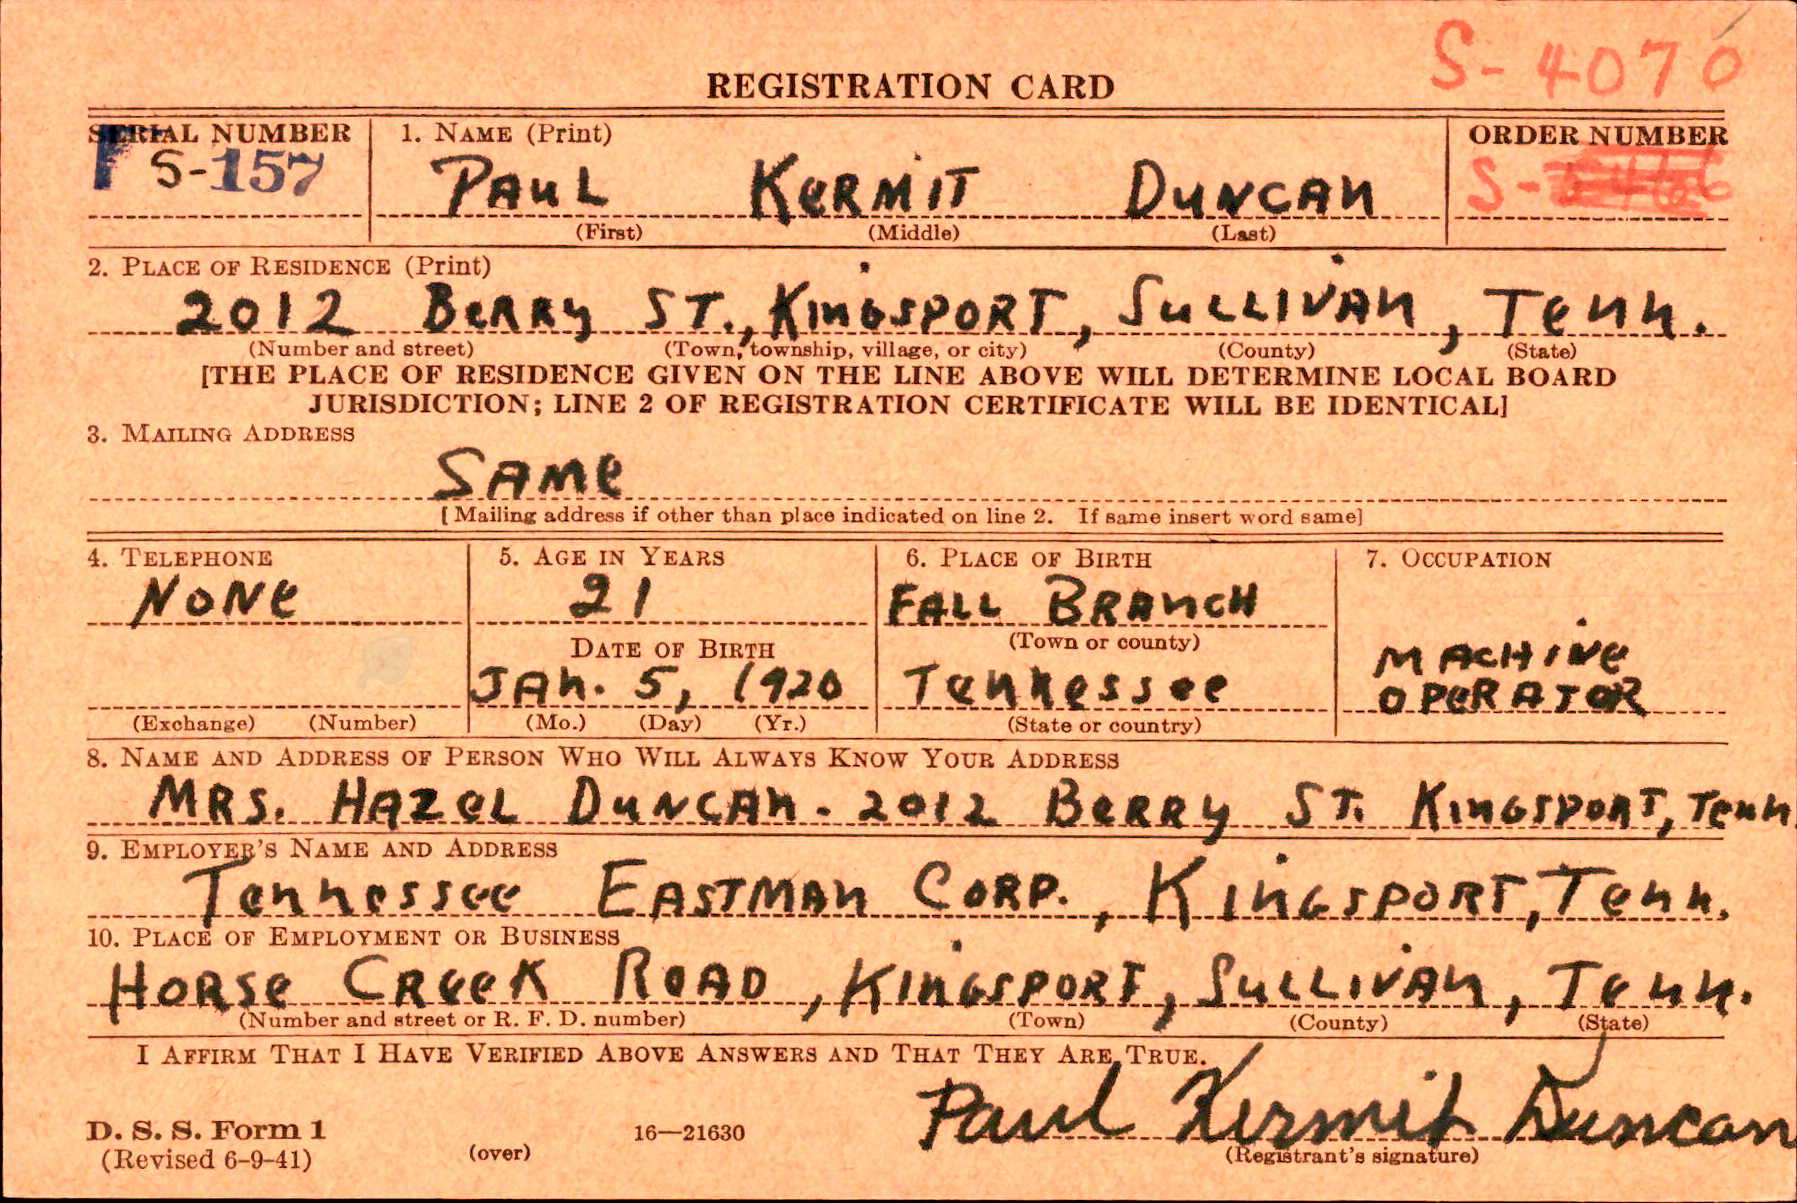 S-4070
REGISTRATION CARD
SERIAL NUMBER 1. NAME (Print) ORDER NUMBER
S-157 PAUL KERMIT DUNCAN S-
(First) (Middle) (Last)
2. PLACE OF RESIDENCE (Print)
2012 BERRY ST., KINGSPORT, SULLIVAN, TENN.
(Number and street) (Town, township, village, or city) (County) (State)
[THE PLACE OF RESIDENCE GIVEN ON THE LINE ABOVE WILL DETERMINE LOCAL BOARD
JURISDICTION; LINE 2 OF REGISTRATION CERTIFICATE WILL BE IDENTICAL]
3. MAILING ADDRESS
SAME
[Mailing address if other than place indicated on line 2. If same insert word same]
4. TELEPHONE 5. AGE IN YEARS 6. PLACE OF BIRTH 7. OCCUPATION
NONE 21 FALL BRANCH
DATE OF BIRTH (Town or county) MACHINE
JAN. 5, 1920 TENNESSEE OPERATOR
(Exchange) (Number) (Mo.) (Day) (Yr.) (State or country)
8. NAME AND ADDRESS OF PERSON WHO WILL ALWAYS KNOW YOUR ADDRESS
MRS. HAZEL DUNCAN - 2012 BERRY ST. KINGSPORT, TENN.
9. EMPLOYER'S NAME AND ADDRESS
TENNESSEE EASTMAN CORP., KINGSPORT, TENN.
10. PLACE OF EMPLOYMENT OR BUSINESS
HORSE CREEK ROAD, KINGSPORT, SULLIVAN, TENN.
(Number and street or R. F. D. number) (Town) (County) (State)
I AFFIRM THAT I HAVE VERIFIED ABOVE ANSWERS AND THAT THEY ARE TRUE.
Paul Kermit Duncan
D. S. S. Form 1 16—21630
(Revised 6-9-41) (over) (Registrant's signature)